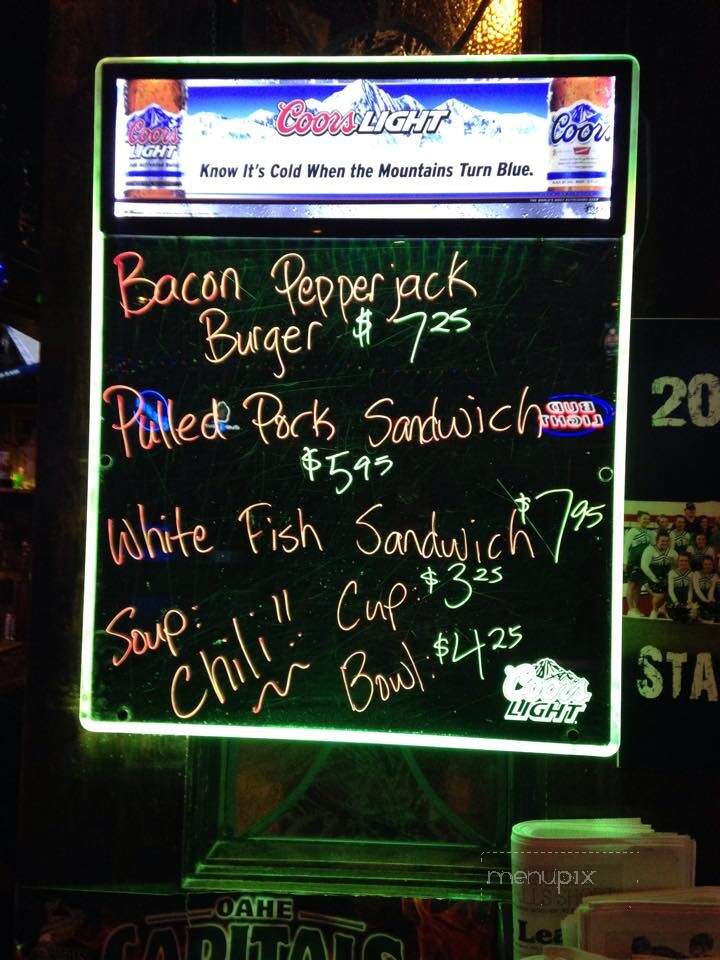 Coors LIGHT
Coors LIGHT
Coors
Know It's Cold When the Mountains Turn Blue.
Bacon Pepperjack
Burger $7.25
Pulled Pork Sandwich
BUD LIGHT
$5.95
White Fish Sandwich $7.95
Soup: Chili!! Cup: $3.25
Bowl: $4.25
Coors LIGHT
20
STA
menupix
OAHE
CAPITALS
Lea